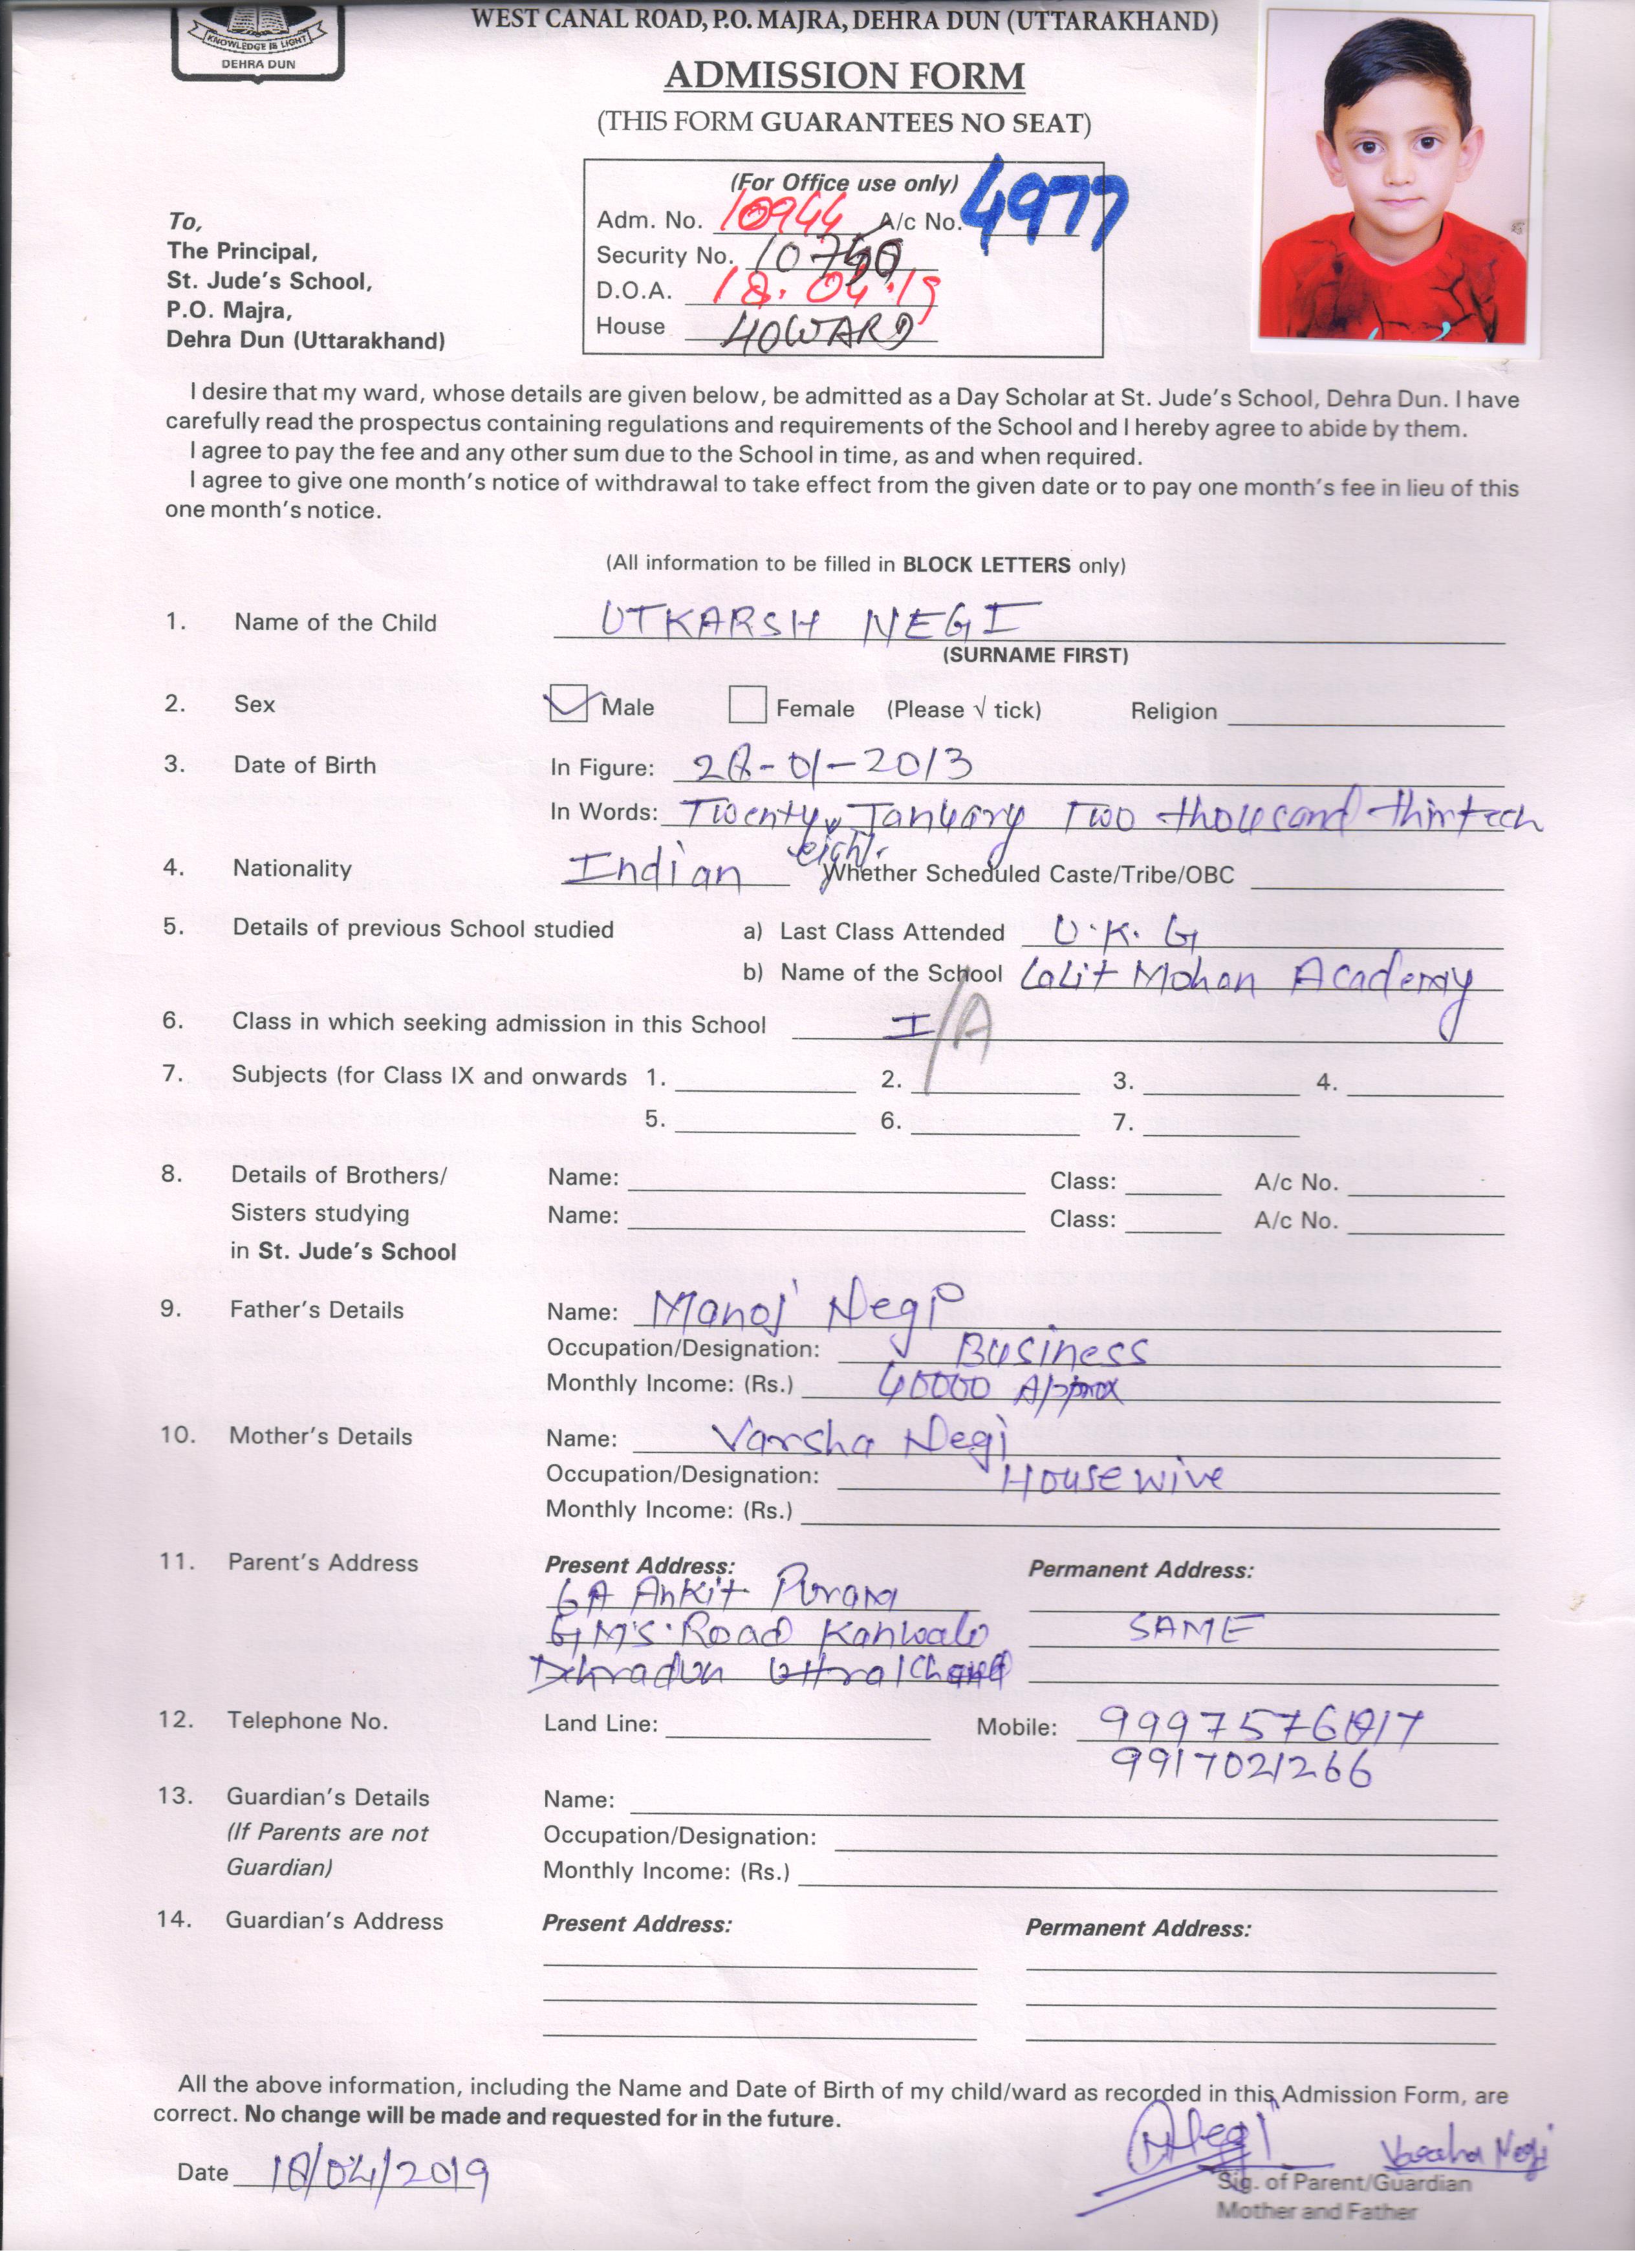 WEST CANAL ROAD, P.O. MAJRA, DEHRA DUN (UTTARAKHAND)
KNOWLEDGE IS LIGHT
DEHRA DUN
ADMISSION FORM
(THIS FORM GUARANTEES NO SEAT)
(For Office use only)
Adm. No. 10944 A/c No. 4977
Security No.
D.O.A. 18.04.19
House HOWARD
To,
The Principal,
St. Jude's School,
P.O. Majra,
Dehra Dun (Uttarakhand)
I desire that my ward, whose details are given below, be admitted as a Day Scholar at St. Jude's School, Dehra Dun. I have
carefully read the prospectus containing regulations and requirements of the School and I hereby agree to abide by them.
I agree to pay the fee and any other sum due to the School in time, as and when required.
I agree to give one month's notice of withdrawal to take effect from the given date or to pay one month's fee in lieu of this
one month's notice.
(All information to be filled in BLOCK LETTERS only)
1. Name of the Child UTKARSH NEGI
(SURNAME FIRST)
2. Sex Male Female (Please √ tick) Religion
3. Date of Birth In Figure: 28-01-2013
In Words: Twenty eight January Two thousand thirteen
4. Nationality Indian Whether Scheduled Caste/Tribe/OBC
5. Details of previous School studied a) Last Class Attended U.K.G
b) Name of the School Lalit Mohan Academy
6. Class in which seeking admission in this School I/A
7. Subjects (for Class IX and onwards 1. 2. 3. 4.
5. 6. 7.
8. Details of Brothers/ Name: Class: A/c No.
Sisters studying Name: Class: A/c No.
in St. Jude's School
9. Father's Details Name: Manoj Negi
Occupation/Designation: Business
Monthly Income: (Rs.) 40000 Approx
10. Mother's Details Name: Varsha Negi
Occupation/Designation: Housewive
Monthly Income: (Rs.)
11. Parent's Address Present Address: Permanent Address:
6A Ankit Puram
G.M.S. Road Kanwali SAME
Dehradun Uttrakhand
12. Telephone No. Land Line: Mobile:
9917021266
13. Guardian's Details Name:
(If Parents are not Occupation/Designation:
Guardian) Monthly Income: (Rs.)
14. Guardian's Address Present Address: Permanent Address:
All the above information, including the Name and Date of Birth of my child/ward as recorded in this Admission Form, are
correct. No change will be made and requested for in the future.
Negi Varsha Negi
Date 18/04/2019
Sig. of Parent/Guardian
Mother and Father